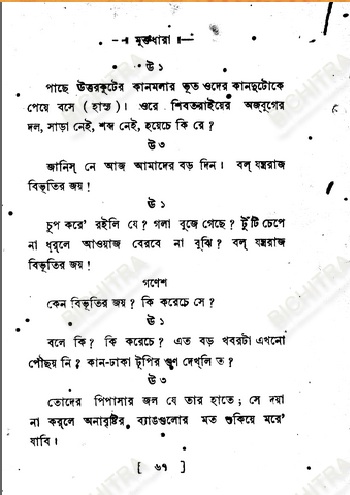 মুক্তধারা
উ ১
পাছে উত্তরকূটের কানমলার ভূত ওদের কানদুটোকে
পেয়ে বসে (হাস্য)। ওরে শিবতরাইয়ের অজ্‌বুগের
দল, সাড়া নেই, শব্দ নেই, হয়েচে কি রে ?
উ ৩
জানিস্ নে আজ আমাদের বড় দিন। বল্ যন্ত্ররাজ
বিভূতির জয় !
উ ১
চুপ করে' রইলি যে ? গলা বুজে গেছে ? টুঁটি চেপে
না ধর্‌লে আওয়াজ বেরবে না বুঝি ? বল্ যন্ত্ররাজ
বিভূতির জয় !
গণেশ
কেন বিভূতির জয় ? কি করেচে সে ?
উ ১
বলে কি ? কি করেচে ? এত বড় খবরটা এখনো
পৌঁছয় নি ? কান-ঢাকা টুপির গুণ দেখ্‌লি ত ?
উ ৩
তোদের পিপাসার জল যে তার হাতে ; সে দয়া
না কর্‌লে অনাবৃষ্টির ব্যাঙগুলোর মত শুকিয়ে মরে'
যাবি।
[ ৬৭ ]
BICHITRA